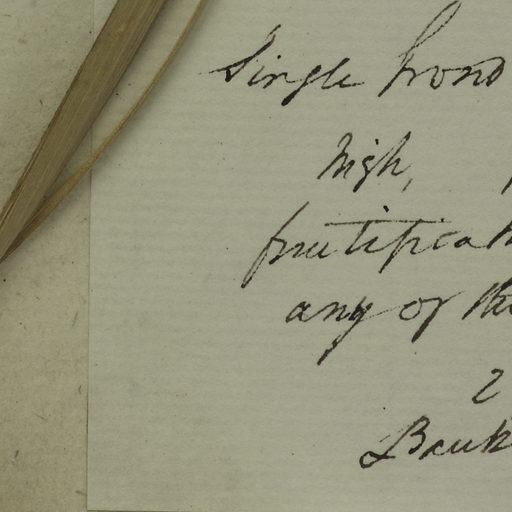 Single frond
high,
fructificat
any of the
2
Bank